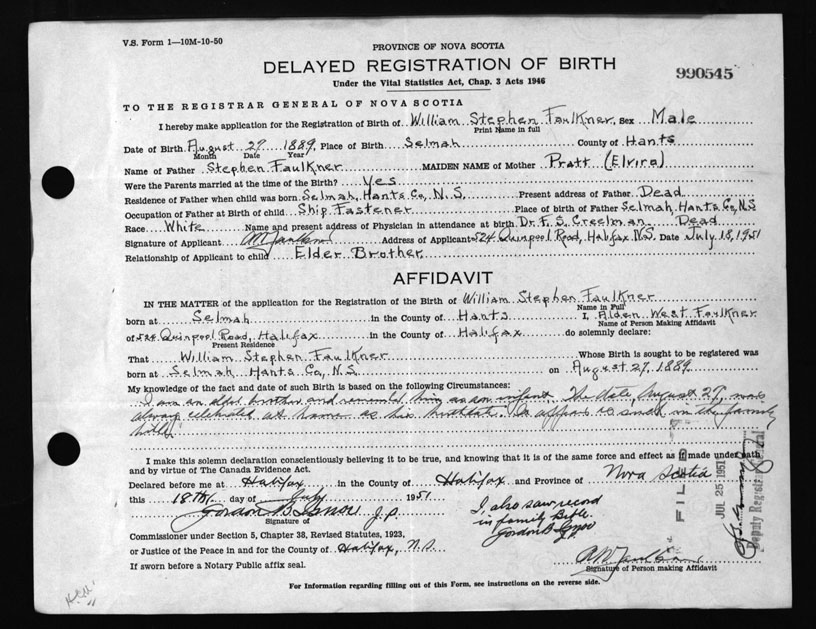 V.S. Form 1—10M-10-50
PROVINCE OF NOVA SCOTIA
DELAYED REGISTRATION OF BIRTH
Under the Vital Statistics Act, Chap. 3 Acts 1946
990545
TO THE REGISTRAR GENERAL OF NOVA SCOTIA
I hereby make application for the Registration of Birth of William Stephen Faulkner Sex Male
Print Name in full
Date of Birth August 27 1889 Place of Birth Selmah County of Hants
Month Date Year
Name of Father Stephen Faulkner MAIDEN NAME of Mother Pratt (Elvira)
Were the Parents married at the time of Birth? Yes
Residence of Father when child was born Selmah, Hants Co, N.S. Present address of Father Dead
Occupation of Father at Birth of child Ship Fastener Place of birth of Father Selmah, Hants Co, NS
Race White Name and present address of Physician in attendance at birth Dr. F. S. Creelman Dead
Signature of Applicant Address of Applicant 524 Quinpool Road, Halifax N.S. Date July 18, 1951
Relationship of Applicant to child Elder Brother
AFFIDAVIT
IN THE MATTER of the application for the Registration of the Birth of William Stephen Faulkner
Name in Full
born at Selmah in the County of Hants I, Alden West Faulkner
Name of Person Making Affidavit
of 524 Quinpool Road, Halifax in the County of Halifax do solemnly declare:
Present Residence
That William Stephen Faulkner Whose Birth is sought to be registered was
born at Selmah Hants Co, N.S. on August 27, 1889
My knowledge of the fact and date of such Birth is based on the following Circumstances:
I am an elder brother and remember him as an infant. The date, August 27, was
always celebrated at home as his birthdate. So appears record in the family
bible
I make this solemn declaration conscientiously believing it to be true, and knowing that it is of the same force and effect as if made under oath
and by virtue of The Canada Evidence Act.
Declared before me at Halifax in the County of Halifax and Province of Nova Scotia
this 18th day of July 1951
Gordon B J.P.
Signature of
I also saw record
in family Bible.
Gordon B
Commissioner under Section 5, Chapter 38, Revised Statutes, 1923,
or Justice of the Peace in and for the County of Halifax, N.S.
If sworn before a Notary Public affix seal.
Signature of Person making Affidavit
FILED
JUL 25 1951
Deputy Registrar General
For Information regarding filling out of this Form, see instructions on the reverse side.